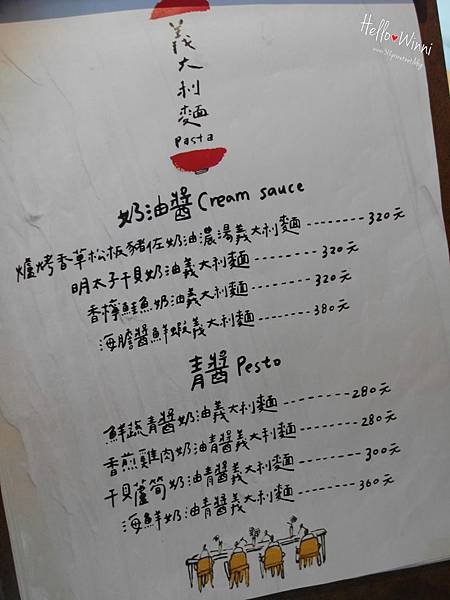 Hello♥Winni
義大利麵
pasta
奶油醬 Cream sauce
爐烤香草松板豬佐奶油濃湯義大利麵 -------- 320元
明太子干貝奶油義大利麵 -------- 320元
香檸鮭魚奶油義大利麵 -------- 320元
海膽醬鮮蝦義大利麵 -------- 380元
青醬 Pesto
鮮蔬青醬奶油義大利麵 --------- 280元
香煎雞肉奶油青醬義大利麵 -------- 280元
干貝蘆筍奶油青醬義大利麵 -------- 300元
海鮮奶油青醬義大利麵 -------- 360元